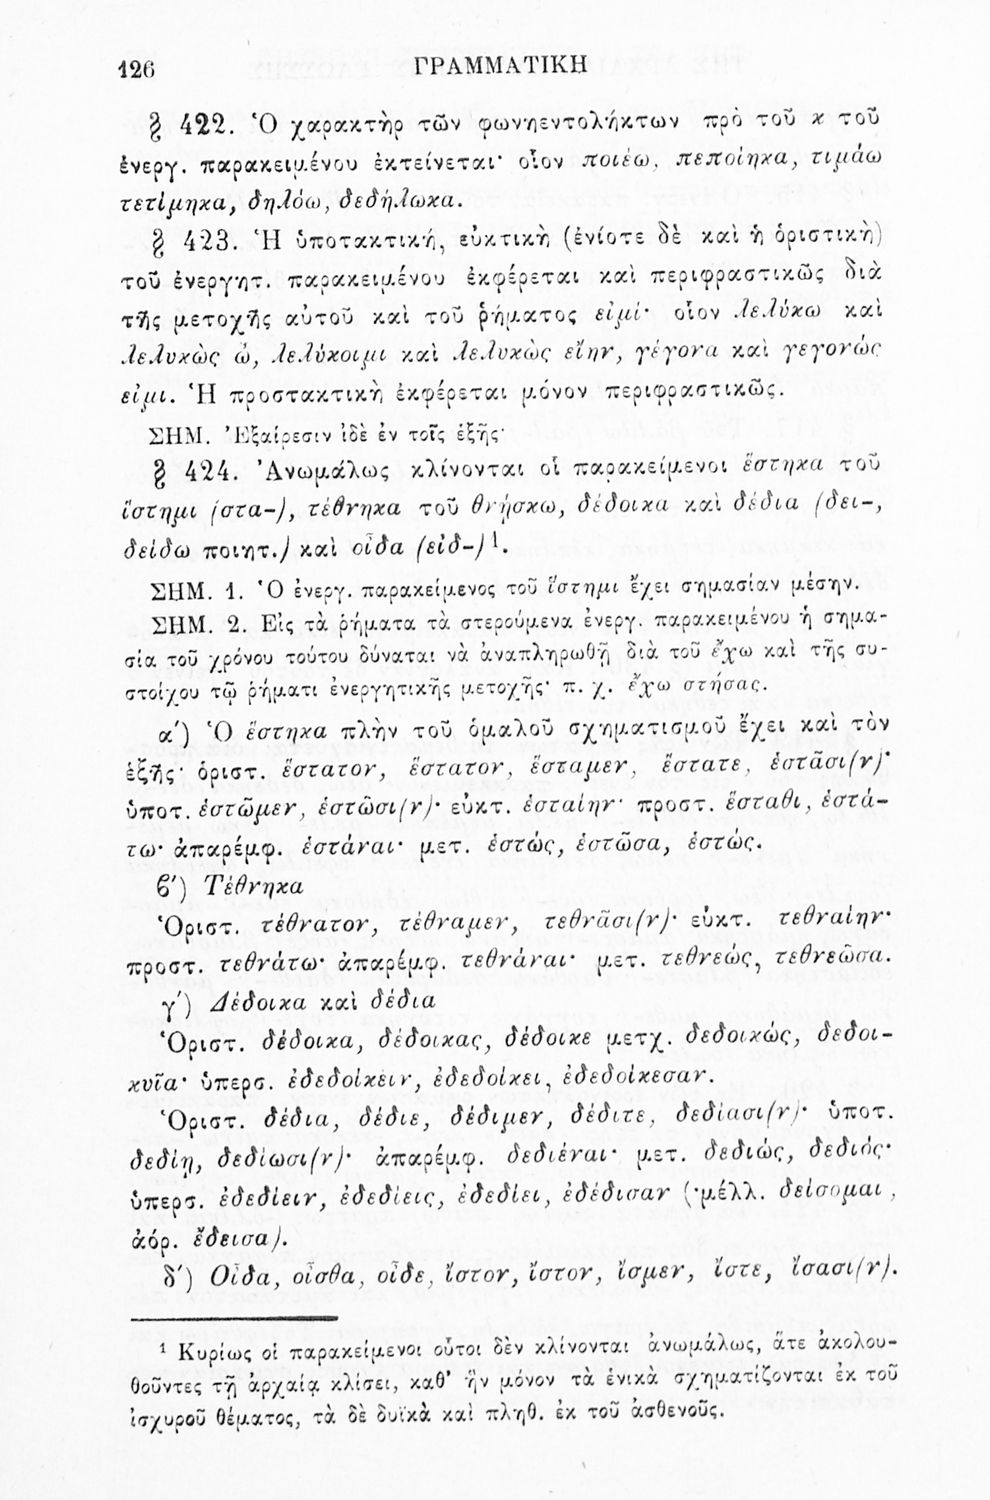 126
ΓΡΑΜΜΑΤΙΚΗ
§ 422. Ὁ χαρακτὴρ τῶν φωνηεντολήκτων πρὸ τοῦ κ τοῦ
ἐνεργ. παρακειμένου ἐκτείνεται· οἷον ποιέω, πεποίηκα, τιμάω
τετίμηκα, δηλόω, δεδήλωκα.
§ 423. Ἡ ὑποτακτική, εὐκτικὴ (ἐνίοτε δὲ καὶ ἡ ὁριστικὴ)
τοῦ ἐνεργητ. παρακειμένου ἐκφέρεται καὶ περιφραστικῶς διὰ
τῆς μετοχῆς αὐτοῦ καὶ τοῦ ῥήματος εἰμί· οἷον λελύκω καὶ
λελυκὼς ὦ, λελύκοιμι καὶ λελυκὼς εἴην, γέγονα καὶ γεγονώς
εἰμι. Ἡ προστακτικὴ ἐκφέρεται μόνον περιφραστικῶς.
ΣΗΜ. Ἐξαίρεσιν ἰδὲ ἐν τοῖς ἑξῆς·
§ 424. Ἀνωμάλως κλίνονται οἱ παρακείμενοι ἕστηκα τοῦ
ἵστημι (στα-), τέθνηκα τοῦ θνήσκω, δέδοικα καὶ δέδια (δει-,
δείδω ποιητ.) καὶ οἶδα (εἰδ-)¹.
ΣΗΜ. 1. Ὁ ἐνεργ. παρακείμενος τοῦ ἵστημι ἔχει σημασίαν μέσην.
ΣΗΜ. 2. Εἰς τὰ ῥήματα τὰ στερούμενα ἐνεργ. παρακειμένου ἡ σημα-
σία τοῦ χρόνου τούτου δύναται νὰ ἀναπληρωθῇ διὰ τοῦ ἔχω καὶ τῆς συ-
στοίχου τῷ ῥήματι ἐνεργητικῆς μετοχῆς· π. χ. ἔχω στήσας.
α′) Ὁ ἕστηκα πλὴν τοῦ ὁμαλοῦ σχηματισμοῦ ἔχει καὶ τὸν
ἑξῆς· ὁριστ. ἕστατον, ἕστατον, ἕσταμεν, ἕστατε, ἑστᾶσι(ν)·
ὑποτ. ἑστῶμεν, ἑστῶσι(ν)· εὐκτ. ἑσταίην· προστ. ἕσταθι, ἑστά-
τω· ἀπαρέμφ. ἑστάναι· μετ. ἑστώς, ἑστῶσα, ἑστώς.
β′) Τέθνηκα
Ὁριστ. τέθνατον, τέθναμεν, τεθνᾶσι(ν)· εὐκτ. τεθναίην·
προστ. τεθνάτω· ἀπαρέμφ. τεθνάναι· μετ. τεθνεώς, τεθνεῶσα.
γ′) Δέδοικα καὶ δέδια
Ὁριστ. δέδοικα, δέδοικας, δέδοικε μετχ. δεδοικώς, δεδοι-
κυῖα· ὑπερσ. ἐδεδοίκειν, ἐδεδοίκει, ἐδεδοίκεσαν.
Ὁριστ. δέδια, δέδιε, δέδιμεν, δέδιτε, δεδίασι(ν)· ὑποτ.
δεδίῃ, δεδίωσι(ν)· ἀπαρέμφ. δεδιέναι· μετ. δεδιώς, δεδιός·
ὑπερσ. ἐδεδίειν, ἐδεδίεις, ἐδεδίει, ἐδέδισαν (·μέλλ. δείσομαι,
ἀόρ. ἔδεισα).
δ′) Οἶδα, οἶσθα, οἶδε, ἴστον, ἴστον, ἴσμεν, ἴστε, ἴσασι(ν).
¹ Κυρίως οἱ παρακείμενοι οὗτοι δὲν κλίνονται ἀνωμάλως, ἅτε ἀκολου-
θοῦντες τῇ ἀρχαίᾳ κλίσει, καθ' ἣν μόνον τὰ ἑνικὰ σχηματίζονται ἐκ τοῦ
ἰσχυροῦ θέματος, τὰ δὲ δυϊκὰ καὶ πληθ. ἐκ τοῦ ἀσθενοῦς.